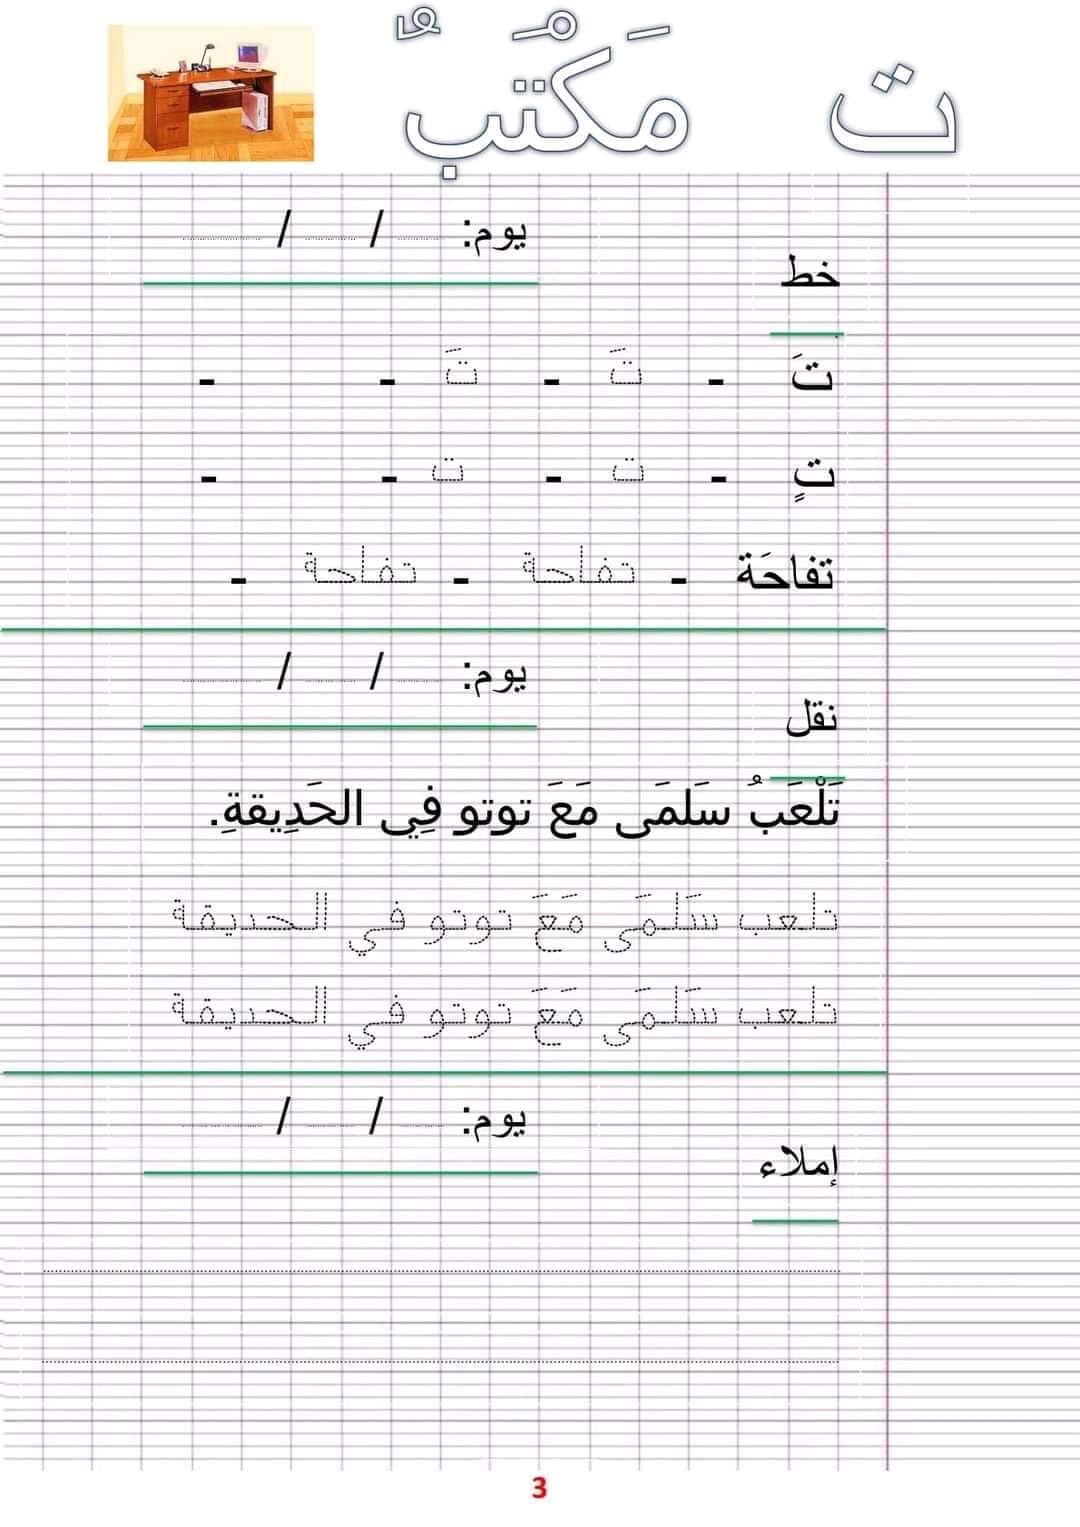 ت مَكْتَبٌ
يوم: / /
خط
تَ - تَ - تَ - -
تٍ - ت - ت - -
تفاحَة - تفاحة - تفاحة -
يوم: / /
نقل
تَلْعَبُ سَلمَى مَعَ توتو فِي الحَدِيقةِ.
تلعب سَلمَى مَعَ توتو في الحديقة
تلعب سَلمَى مَعَ توتو في الحديقة
يوم: / /
إملاء
3